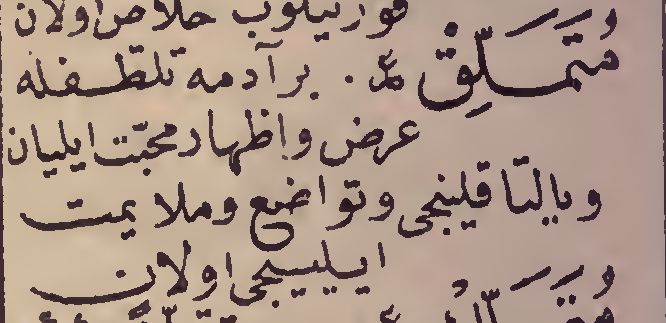 قورتیلوب خلاص اولان
مُتَمَلِّقْ ع. بر آدمه تلطفله
عرض و اظهار محبّت ایلیان
و یالتاقلینجی و تواضع و ملایمت
ایلییجی اولان